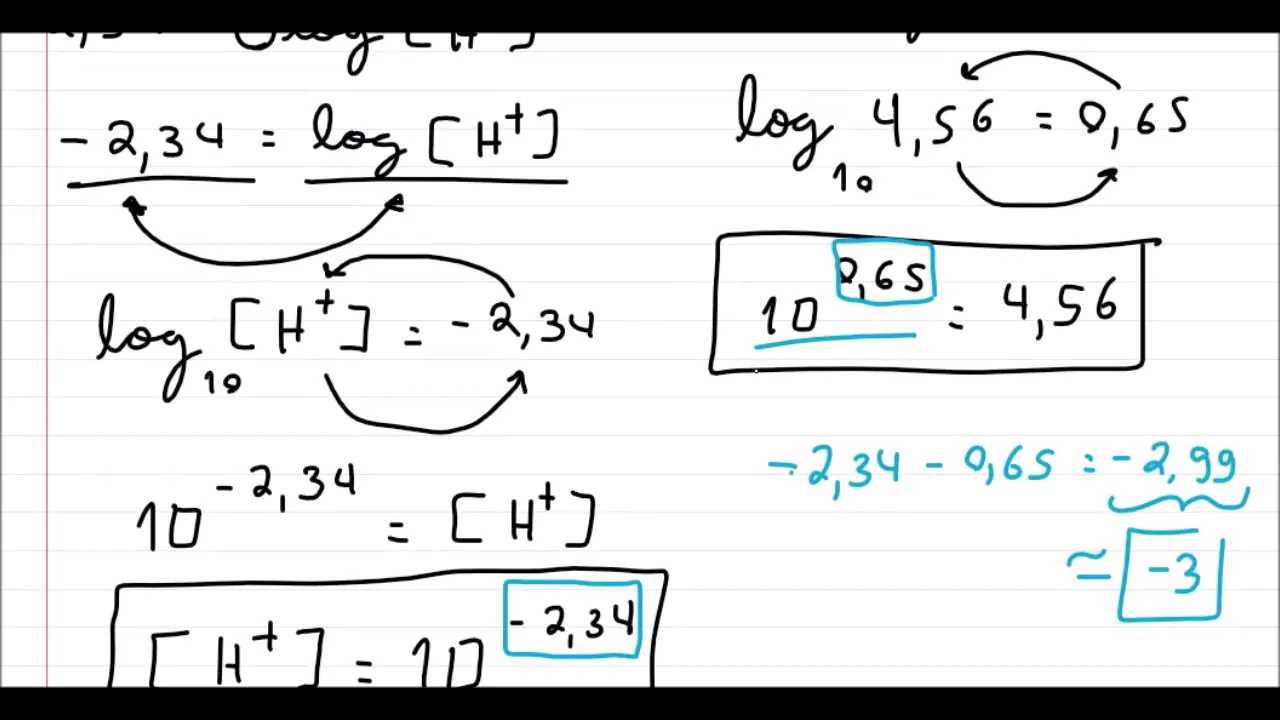 log [H⁺]
-2,34 = log [H⁺]
log₁₀ [H⁺] = -2,34
10^-2,34 = [H⁺]
[H⁺] = 10^-2,34
log₁₀ 4,56 = 0,65
10^0,65 = 4,56
-2,34 - 0,65 = -2,99
≃ -3